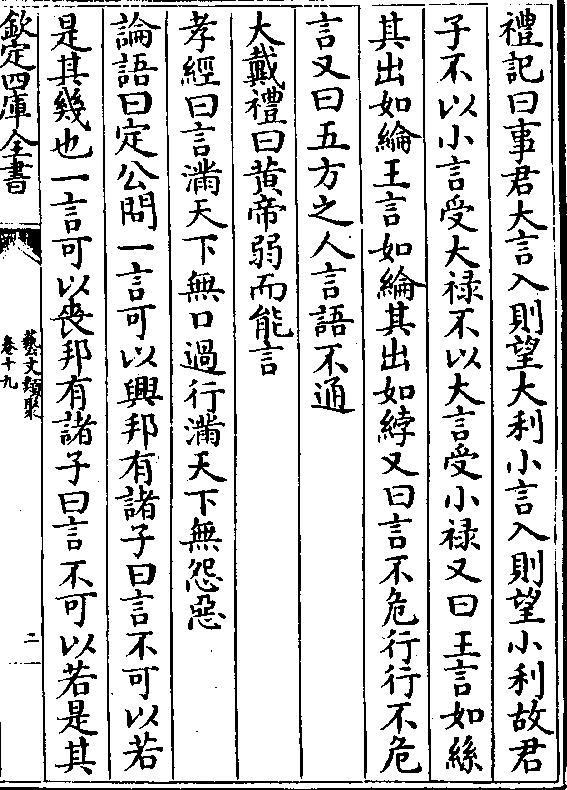 禮記曰事君大言入則望大利小言入則望小利故君
子不以小言受大禄不以大言受小禄又曰王言如絲
其出如綸王言如綸其出如綍又曰言不危行行不危
言又曰五方之人言語不通
大戴禮曰黄帝弱而能言
孝經曰言滿天下無口過行滿天下無怨惡
論語曰定公問一言可以興邦有諸子曰言不可以若
是其幾也一言可以喪邦有諸子曰言不可以若是其
欽定四庫全書
藝文類聚
卷十九
二